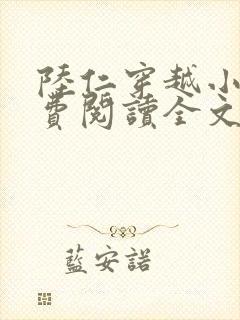 陸仁穿越小
費閱讀全文
藍安諾